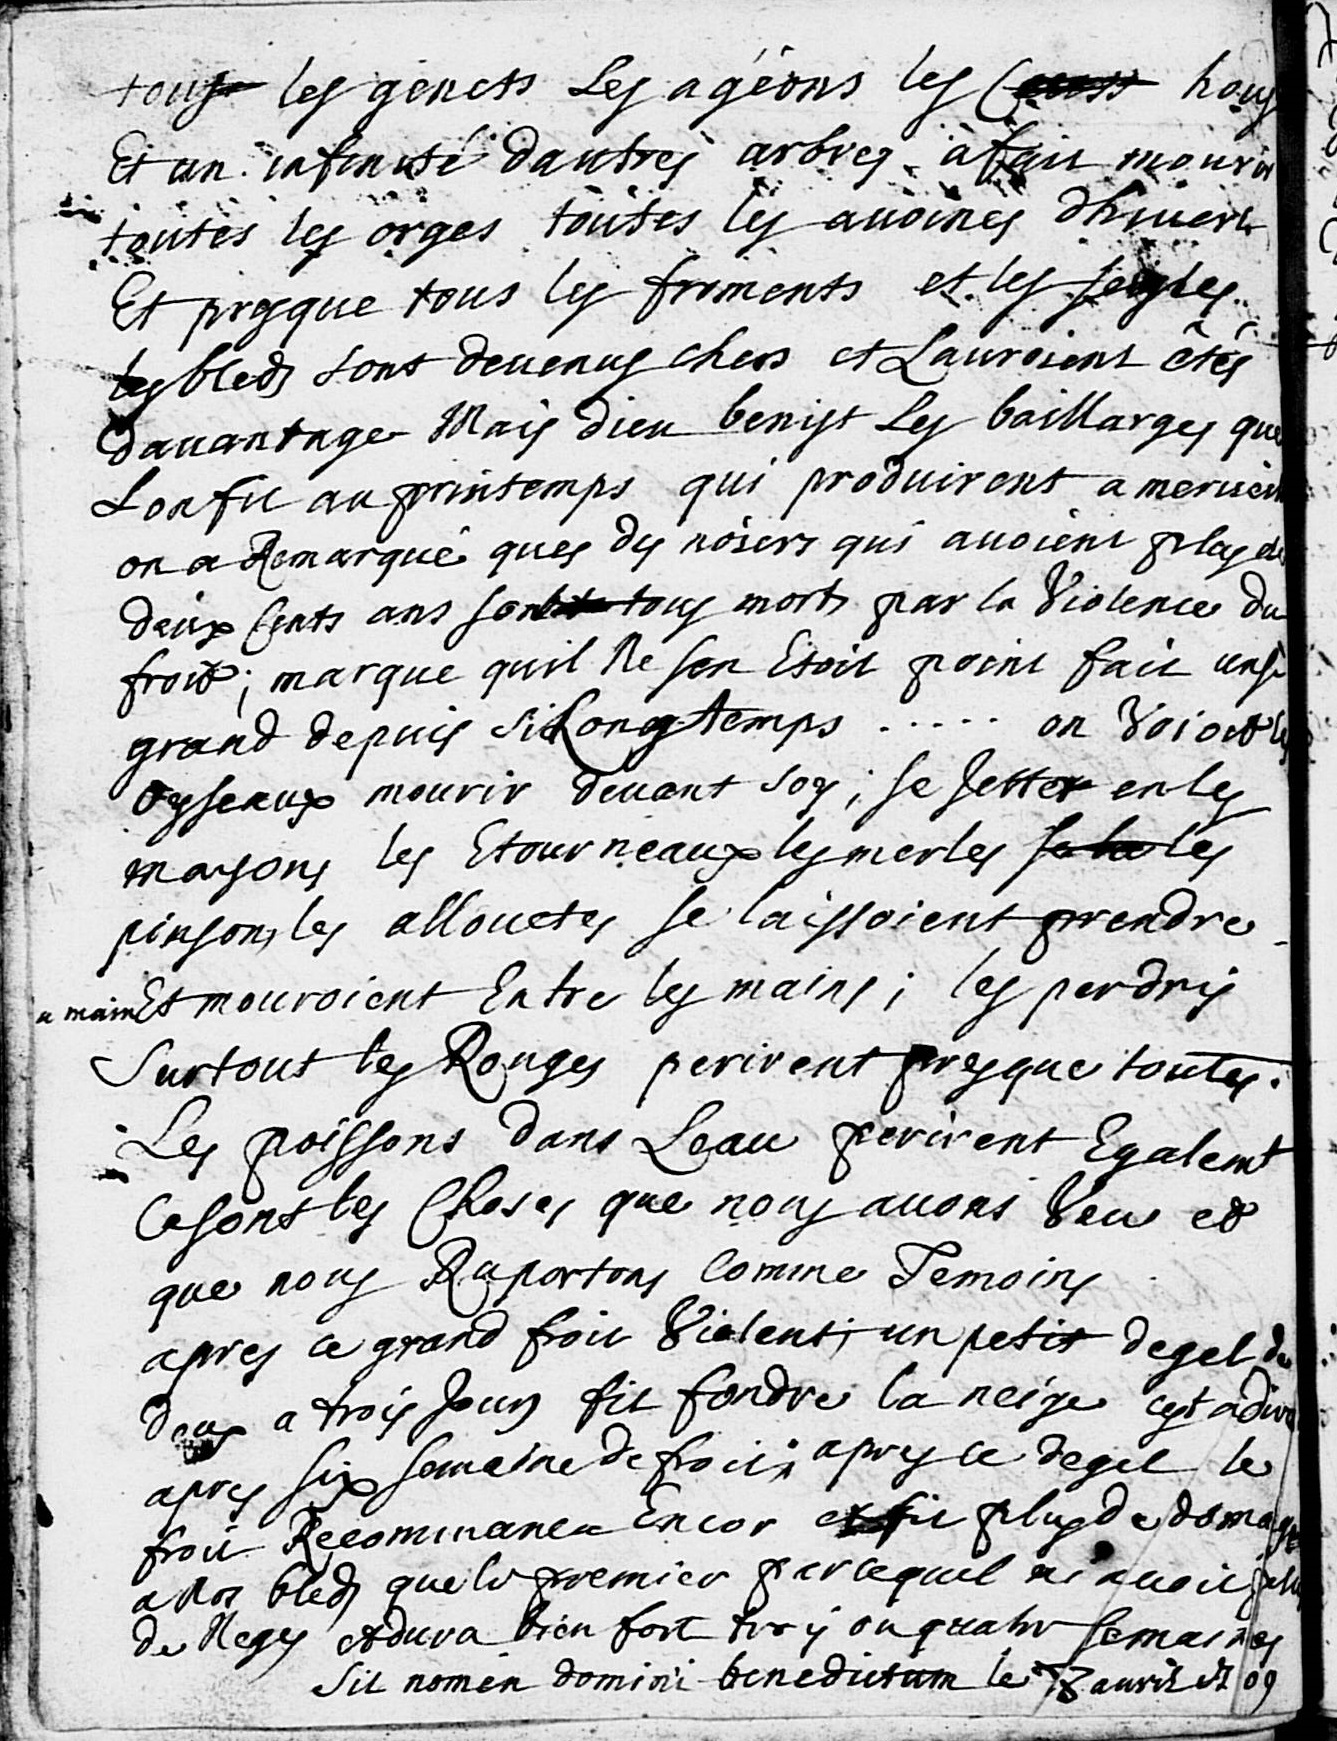 tous les genets Les ageons les houx
Et un infinité dautres arbres, a fait mourir
toutes les orges toutes les auoines dhiuert
Et presque tous les froments et les seigles
les bleds sont deuenus chers et Lauroient êtés
dauantage Mais dieu benist Les baillarges que
Lon fit au printemps qui produirent a merueil
on a Remarqué ques des noiers qui auoient plus de
deux Cents ans sont tous morts par la Violence du
froid; marque quil Ne sen Etoit point fait un si
grand depuis si Long temps ..... on Voioit les
oyseaux mourir deuant soy; se Jetter en les
maysons les Etourneaux les merles les
pinsons, les allouetes se laissoient prendre
a main Et mouroient Entre les mains; les perdris
Surtout les Rouges perirent presque toutes.
Les poissons dans Leau perirent Egalemt
Ce sont les Choses que nous auons Veu et
que nous Raportons Comme Temoins
apres ce grand froit Violent; un petit degel de
deux a trois Jours fit fondre la neige cest a dire
apres six semaine de froit; apres ce degel le
froit Recommanca Encor et fit plus de domage
a Nos bleds que le premier parcequil ni auoit plus
de Neges et dura bien fort trois ou quatre semaines
Sit nomen domini benedictum le auril 1709